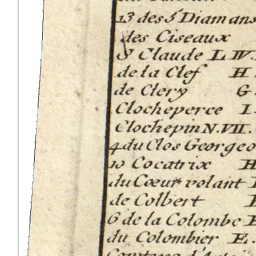 13 des 5 Diamans
des Ciseaux
S Claude L. IV.
de la Clef H.
de Clery G.
Clocheperce I.
Clochepin N. VII.
4 du Clos George o
10 Cocatrix H
du Cœur volant I
de Colbert
6 de la Colombe
du Colombier E.